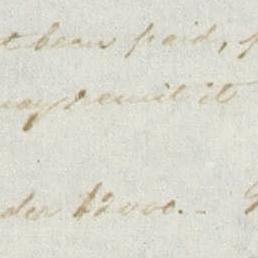 t been paid,
may remit it
der $2000.-